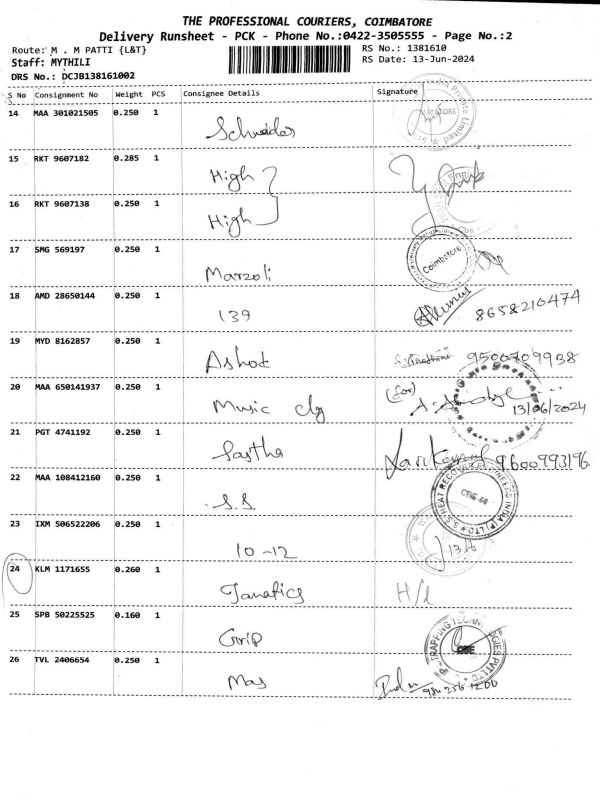 THE PROFESSIONAL COURIERS, COIMBATORE
Delivery Runsheet - PCK - Phone No.:0422-3505555 - Page No.:2
Route: M . M PATTI {L&T} RS No.: 1381610
Staff: MYTHILI RS Date: 13-Jun-2024
DRS No.: DCJB138161002
S No Consignment No Weight PCS Consignee Details Signature
14 MAA 301021505 0.250 1
Schneider
15 RKT 9607182 0.285 1
High
16 RKT 9607138 0.250 1
High
17 SMG 569197 0.250 1
Marzoli Coimbatore
18 AMD 28650144 0.250 1
139 8658210474
19 MYD 8162857 0.250 1
Ashok 9500709938
20 MAA 650141937 0.250 1 (for)
Music clg 13/06/2024
21 PGT 4741192 0.250 1
Sastha 9600993196
22 MAA 108412160 0.250 1
S.S. S.S HEAT RECOVERY ENGINEERS INDIA (P) LTD
23 IXM 506522206 0.250 1
10-12 13/6
24 KLM 1171655 0.260 1
Fanatics H/L
25 SPB 50225525 0.160 1
Grip
26 TVL 2406654 0.250 1
Mas